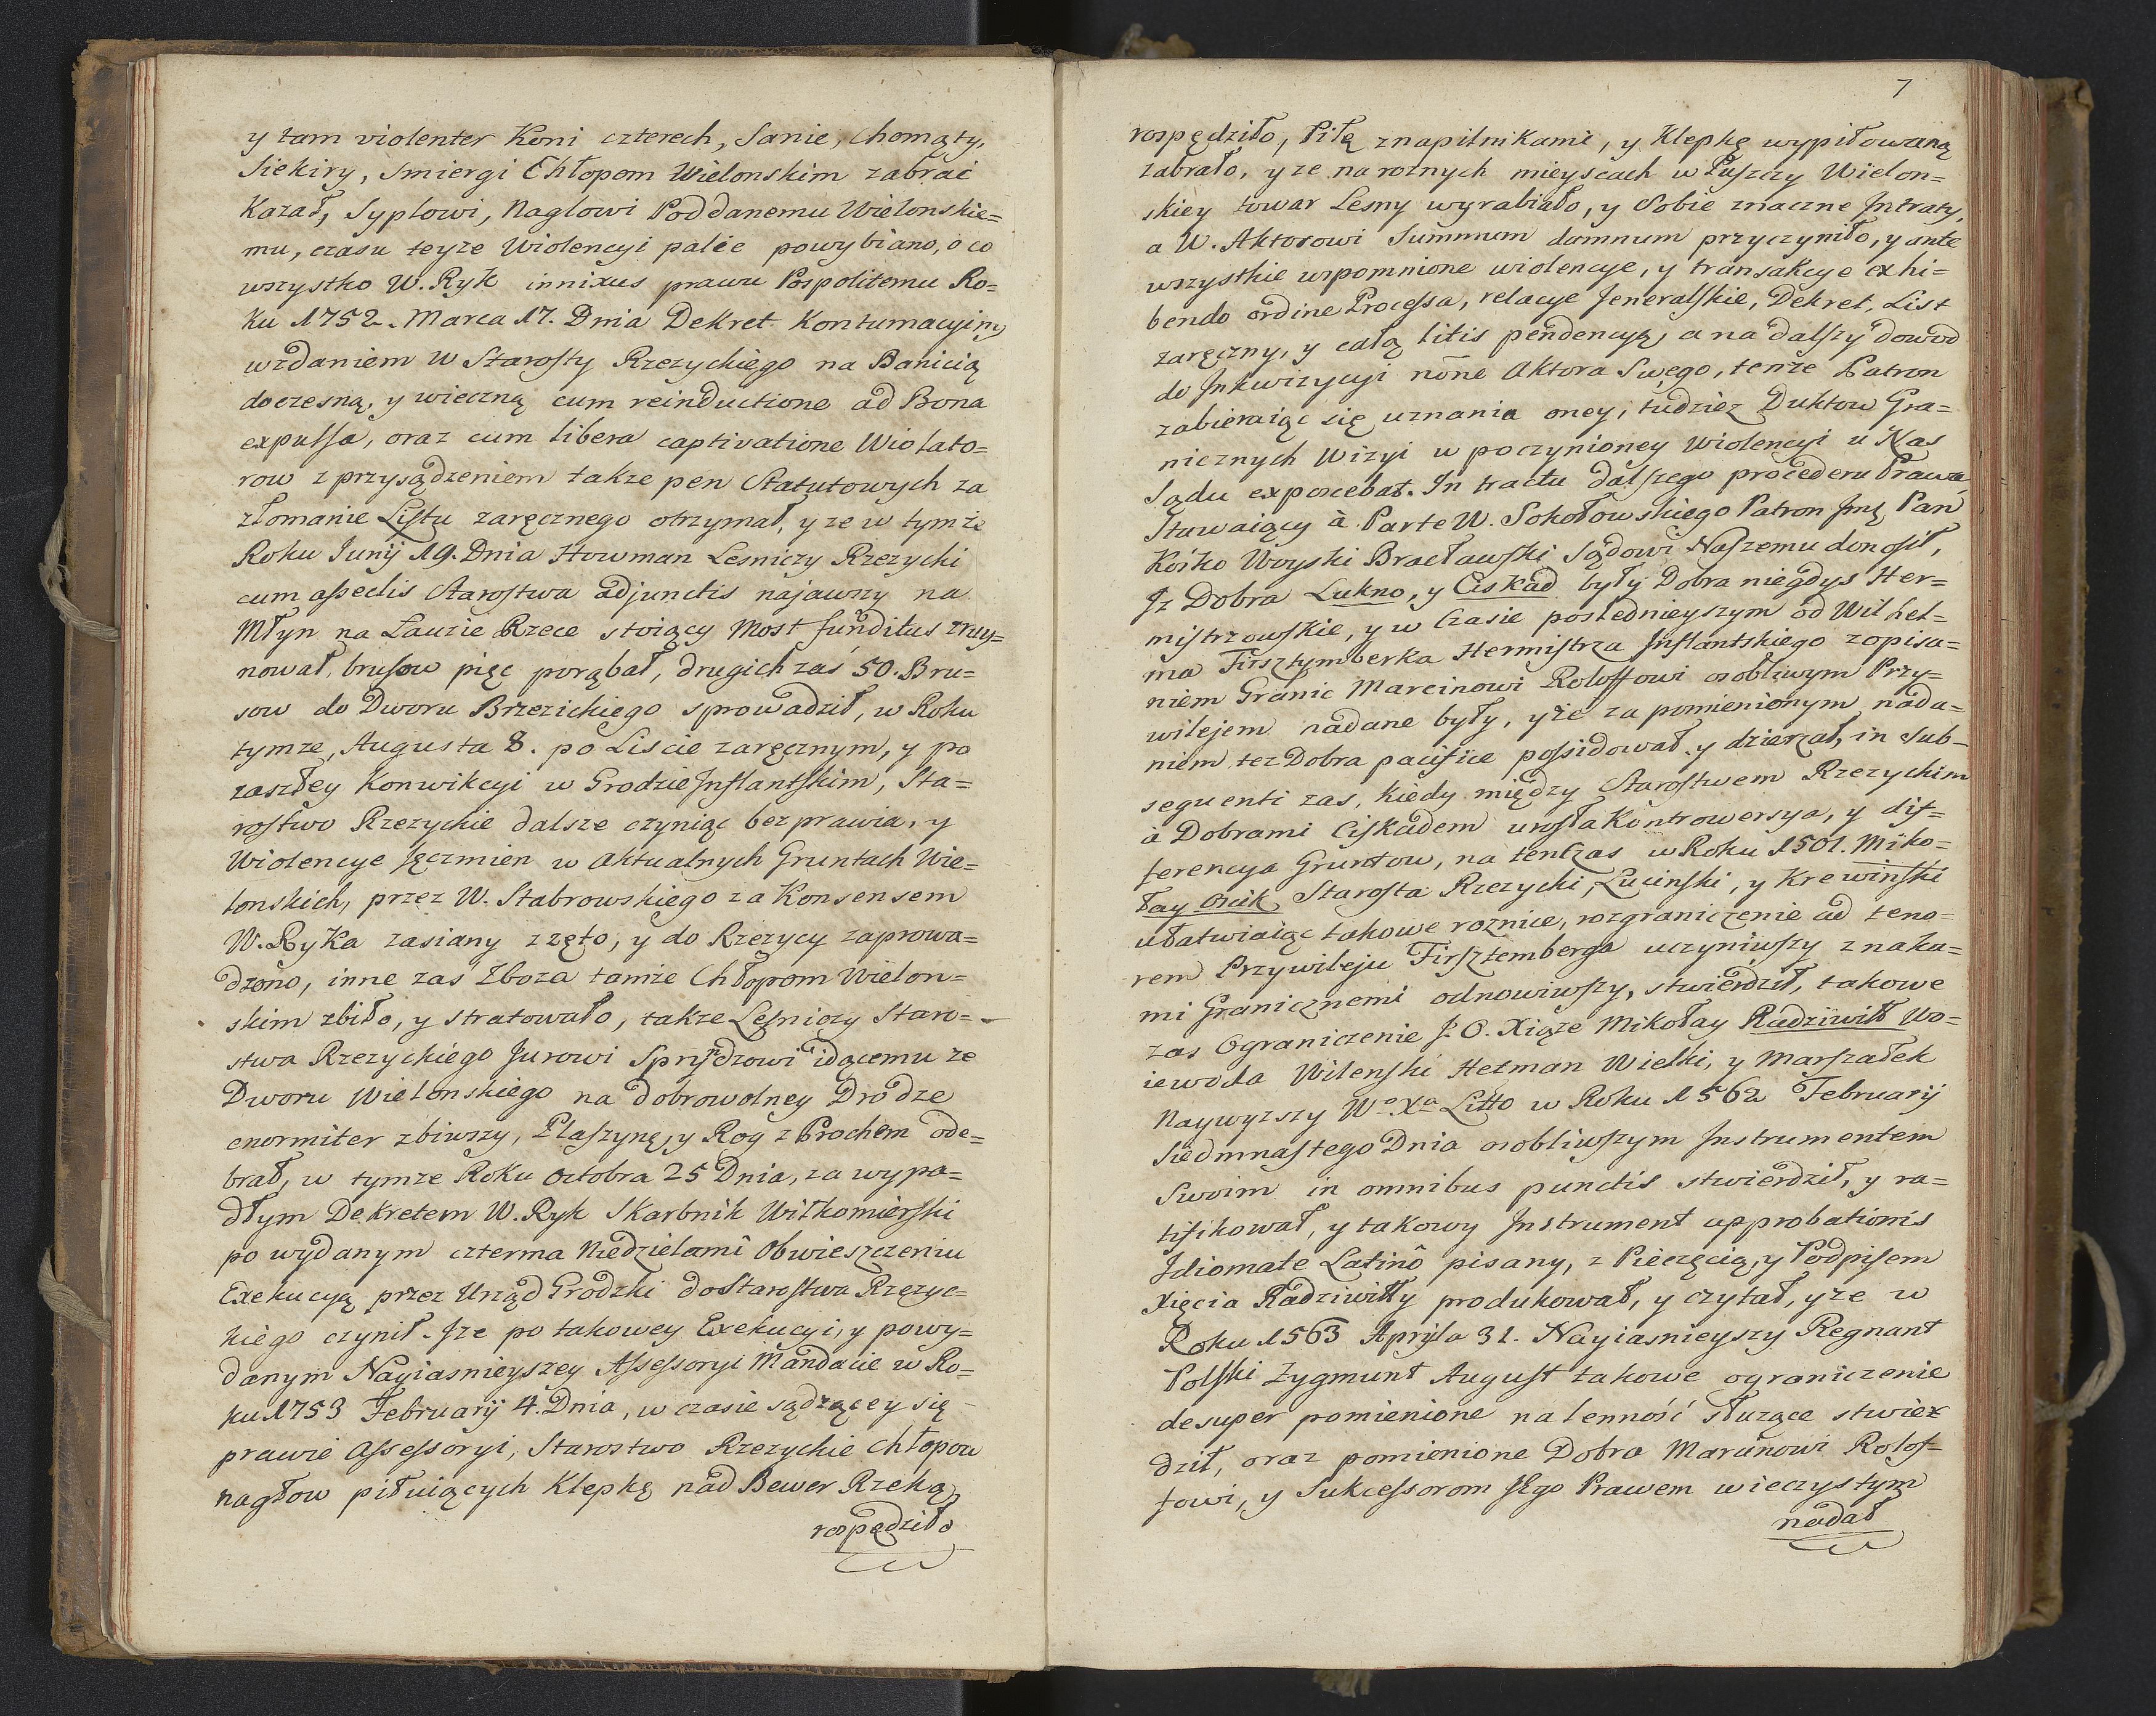 y tam violenter Koni czterech, Sanie, Chomąty,
Siekiry, Smiergi Chłopom Wielonskim zabrać
Kazał, Syplowi, Naglowi Poddanemu Wielonskie=
mu, czasu teyze Wiolencyi palce powybiano, o co
wszystko W. Ryk innixus prawu Pospolitemu Ro=
ku 1752. Marca 17. Dnia Dekret Kontumacyiny
wzdaniem W Starosty Rzezyckiego na Banicią
doczesną, y wieczną cum reinductione ad Bona
expulsa, oraz cum libera captivatione Wiolato=
row z przysądzeniem takze pen Statutowych za
złomanie Listu zaręcznego otrzymał, y ze w tymże
Roku Junij 19. Dnia Howman Lesniczy Rzezycki
cum asseclis Starostwa adjunctis najawszy na
Młyn na Lauzie Rzece stoiący Most funditus zruy=
nował, brusow pięc porąbał, drugich zaś 50. Bru=
sow do Dworu Brzezickiego sprowadził, w Roku
tymze, Augusta 8. po Liscie zaręcznym, y po
zaszłey Konwikcyi w Grodzie Inflantskim, Sta=
rostwo Rzezyckie dalsze czyniąc bezprawia, y
Wiolencye Jęczmien w aktualnych Gruntach Wie=
lonskich, przez W. Stabrowskiego za Konsensem
W. Ryka zasiany zzęto, y do Rzezycy zaprowa=
dzono, inne zas Zboza tamże Chłopom Wielon=
skim zbiło, y stratowało, takze Lesniczy Staro=
stwa Rzezyckiego Jurowi Spryędzowi idącemu ze
Dworu Wielonskiego na dobrowolney Drodze
enormiter zbiwszy, Plaszynę, y Rog z Prochem ode=
brał, w tymze Roku octobra 25 Dnia, za wypa=
dłym Dekretem W. Ryk Skarbnik Wiłkomierski
po wydanym czterma Niedzielami Obwieszczeniu
Exekucyą przez Urząd Grodzki do Starostwa Rzezyc=
kiego czynił. Jze po takowey Exekucyi, y powy=
danym Nayiasnieyszey Assessoryi Mandacie w Ro=
ku 1753 Februarij 4. Dnia, w czasie sądzącey się
prawie Assessoryi, Starostwo Rzezyckie Chłopow
nagłow piłuiących Klepkę nad Bewer Rzeką,
rospędziło
7
rospędziło, Piłę z napilnikami, y Klepkę wypiłowaną
zabrało, y ze na roznych mieyscach w Puszczy Wielon=
skiey towar Lesny wyrabiało, y Sobie znaczne Intraty,
a W. Aktorowi Summum damnum przyczyniło, y ante
wszystkie wspomnione wiolencye, y transakcye exhi=
bendo ordine Processa, relacye Jeneralskie, Dekret, List
zaręczny, y całą litis pendencyę, a na dalszy dowod
do Inkwizycyi noñe Aktora Swego, tenze Patron
zabieraiąc się uznania oney, tudziez Duktow Gra=
nicznych Wizyi w poczynioney Wiolencyi u Nas
Sądu exposcebat. In tractu dalszego procederu Prawa
Stawaiący à Parte W. Sokołowskiego Patron Jmę Pan
Kosko Woyski Bracławski Sądowi Naszemu donosił,
Jz Dobra Lukno, y Ciskad były Dobra niegdys Her=
mistrzowskie, y w Czasie poslednieyszym od Wilhel=
ma Firsztymberka Hermistrza Inflantskiego zopisa=
niem Granic Marcinowi Roloffowi osobliwym Przy=
wilejem nadane były, yże za pomienionym nada=
niem tez Dobra pacifice possidował y dzierzał, in sub=
sequenti zas, kiedy między Starostwem Rzezyckim
à Dobrami Ciskadem urosła Kontrowersya, y dif=
ferencya Gruntow, na tenczas w Roku 1501. Miko=
łay Osiik Starosta Rzezycki, Lucinski, y Krewinski
ułatwiaiąc takowe roznice, rozgraniczenie ad teno=
rem Przywileju Firsztemberga uczyniwszy znaka=
mi Granicznemi odnowiwszy, stwierdził, takowe
zas Ograniczenie J. O. Xiąze Mikołay Radziwiłł Wo=
iewoda Wilenski Hetman Wielki, y Marszałek
Naywyzszy Wo Xa Litto w Roku 1562 Februarij
Siedmnastego Dnia osobliwszym Instrumentem
Swoim in omnibus punctis stwierdził, y ra=
tifikował, y takowy Instrument approbationis
Idiomate Latinô pisany, z Pieczęcią, y Podpisem
Xięcia Radziwiłły produkował, y czytał, yze w
Roku 1563 Apryla 31. Nayiasnieyszy Regnant
Polski Zygmunt August takowe ograniczenie
desuper pomienione na lenność słuzące stwier
dził, oraz pomienione Dobra Marcinowi Rolof=
fowi, y Sukcessorom JEgo Prawem wieczystym
nadał